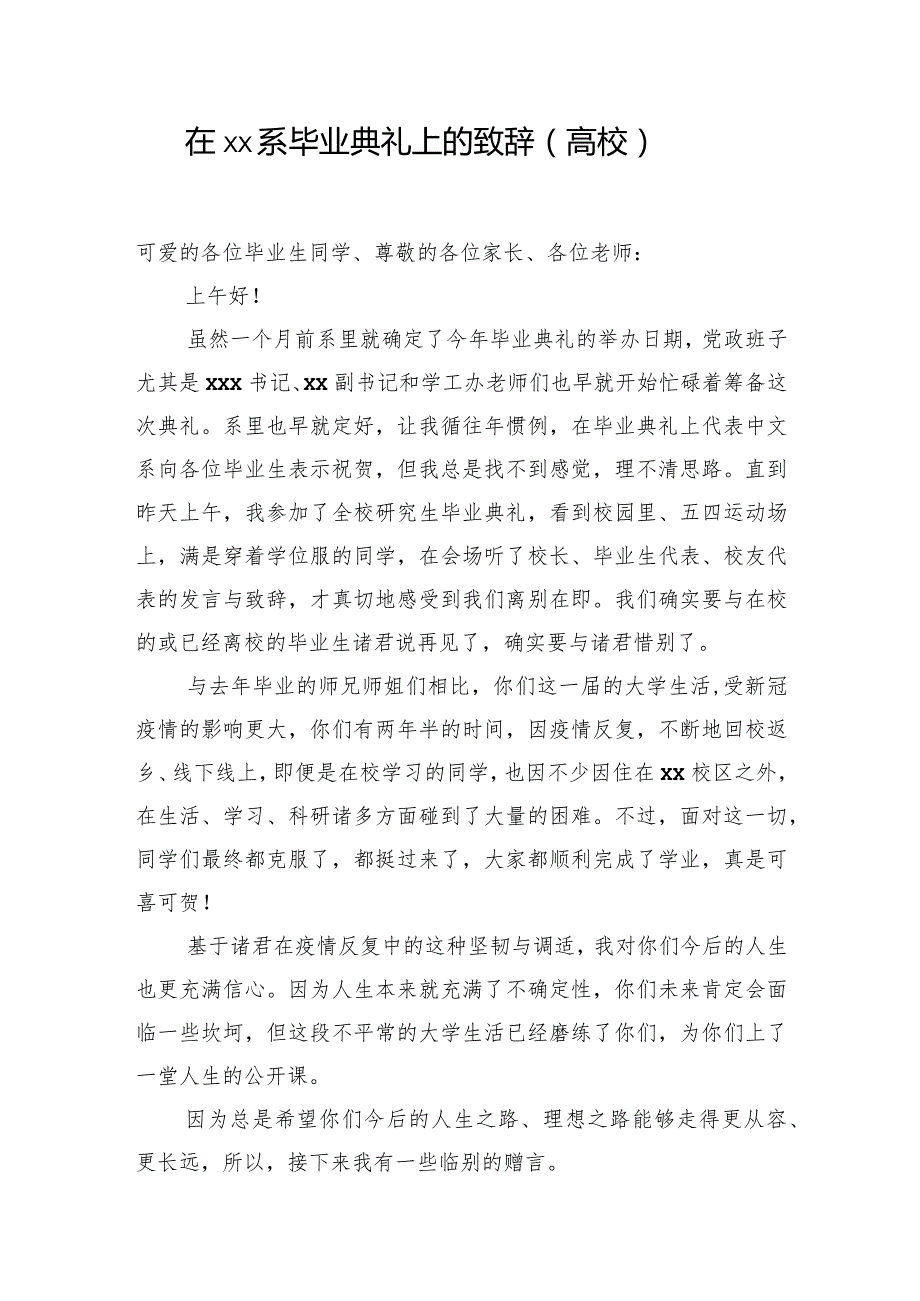 在 xx 系毕业典礼上的致辞（高校）
可爱的各位毕业生同学、尊敬的各位家长、各位老师：
上午好！
虽然一个月前系里就确定了今年毕业典礼的举办日期，党政班子
尤其是 xxx 书记、xx 副书记和学工办老师们也早就开始忙碌着筹备这
次典礼。系里也早就定好，让我循往年惯例，在毕业典礼上代表中文
系向各位毕业生表示祝贺，但我总是找不到感觉，理不清思路。直到
昨天上午，我参加了全校研究生毕业典礼，看到校园里、五四运动场
上，满是穿着学位服的同学，在会场听了校长、毕业生代表、校友代
表的发言与致辞，才真切地感受到我们离别在即。我们确实要与在校
的或已经离校的毕业生诸君说再见了，确实要与诸君惜别了。
与去年毕业的师兄师姐们相比，你们这一届的大学生活,受新冠
疫情的影响更大，你们有两年半的时间，因疫情反复，不断地回校返
乡、线下线上，即便是在校学习的同学，也因不少因住在 xx 校区之外，
在生活、学习、科研诸多方面碰到了大量的困难。不过，面对这一切，
同学们最终都克服了，都挺过来了，大家都顺利完成了学业，真是可
喜可贺！
基于诸君在疫情反复中的这种坚韧与调适，我对你们今后的人生
也更充满信心。因为人生本来就充满了不确定性，你们未来肯定会面
临一些坎坷，但这段不平常的大学生活已经磨练了你们，为你们上了
一堂人生的公开课。
因为总是希望你们今后的人生之路、理想之路能够走得更从容、
更长远，所以，接下来我有一些临别的赠言。